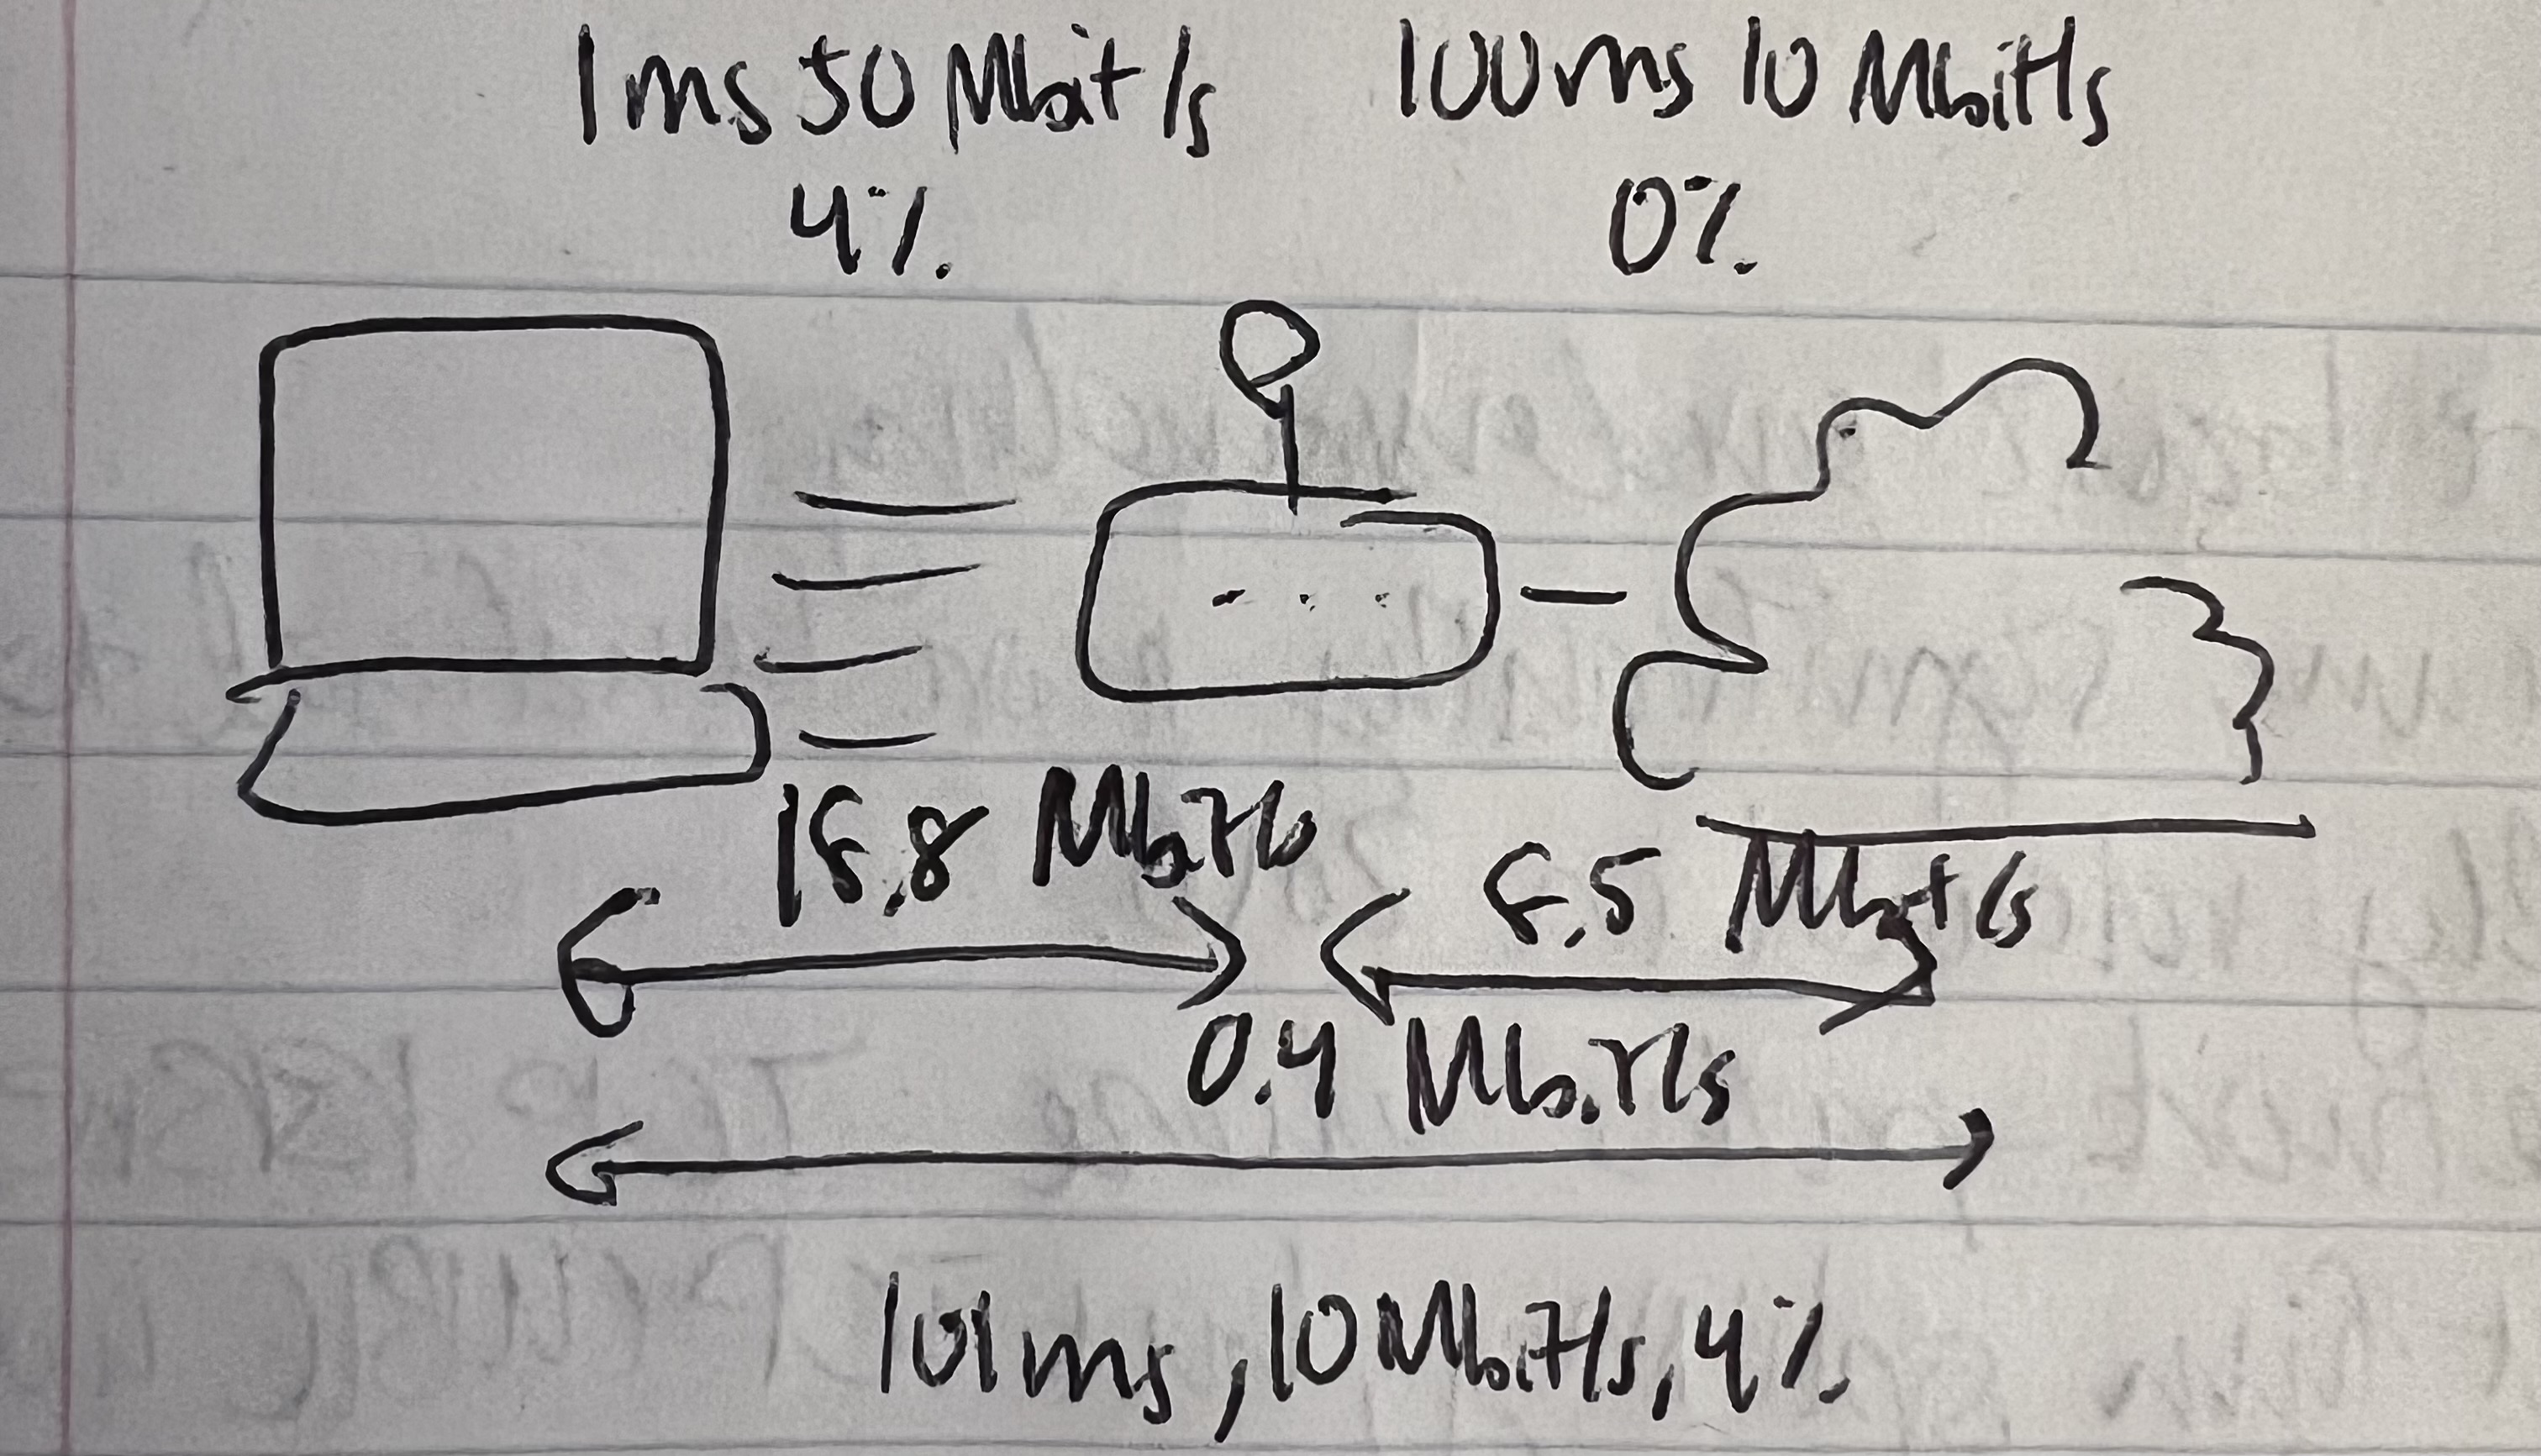 1ms 50 Mbit/s 100ms 10 Mbit/s
4% 0%
Mbit/s
Mbit/s
0.4 Mbit/s
101ms, 10Mbit/s, 4%